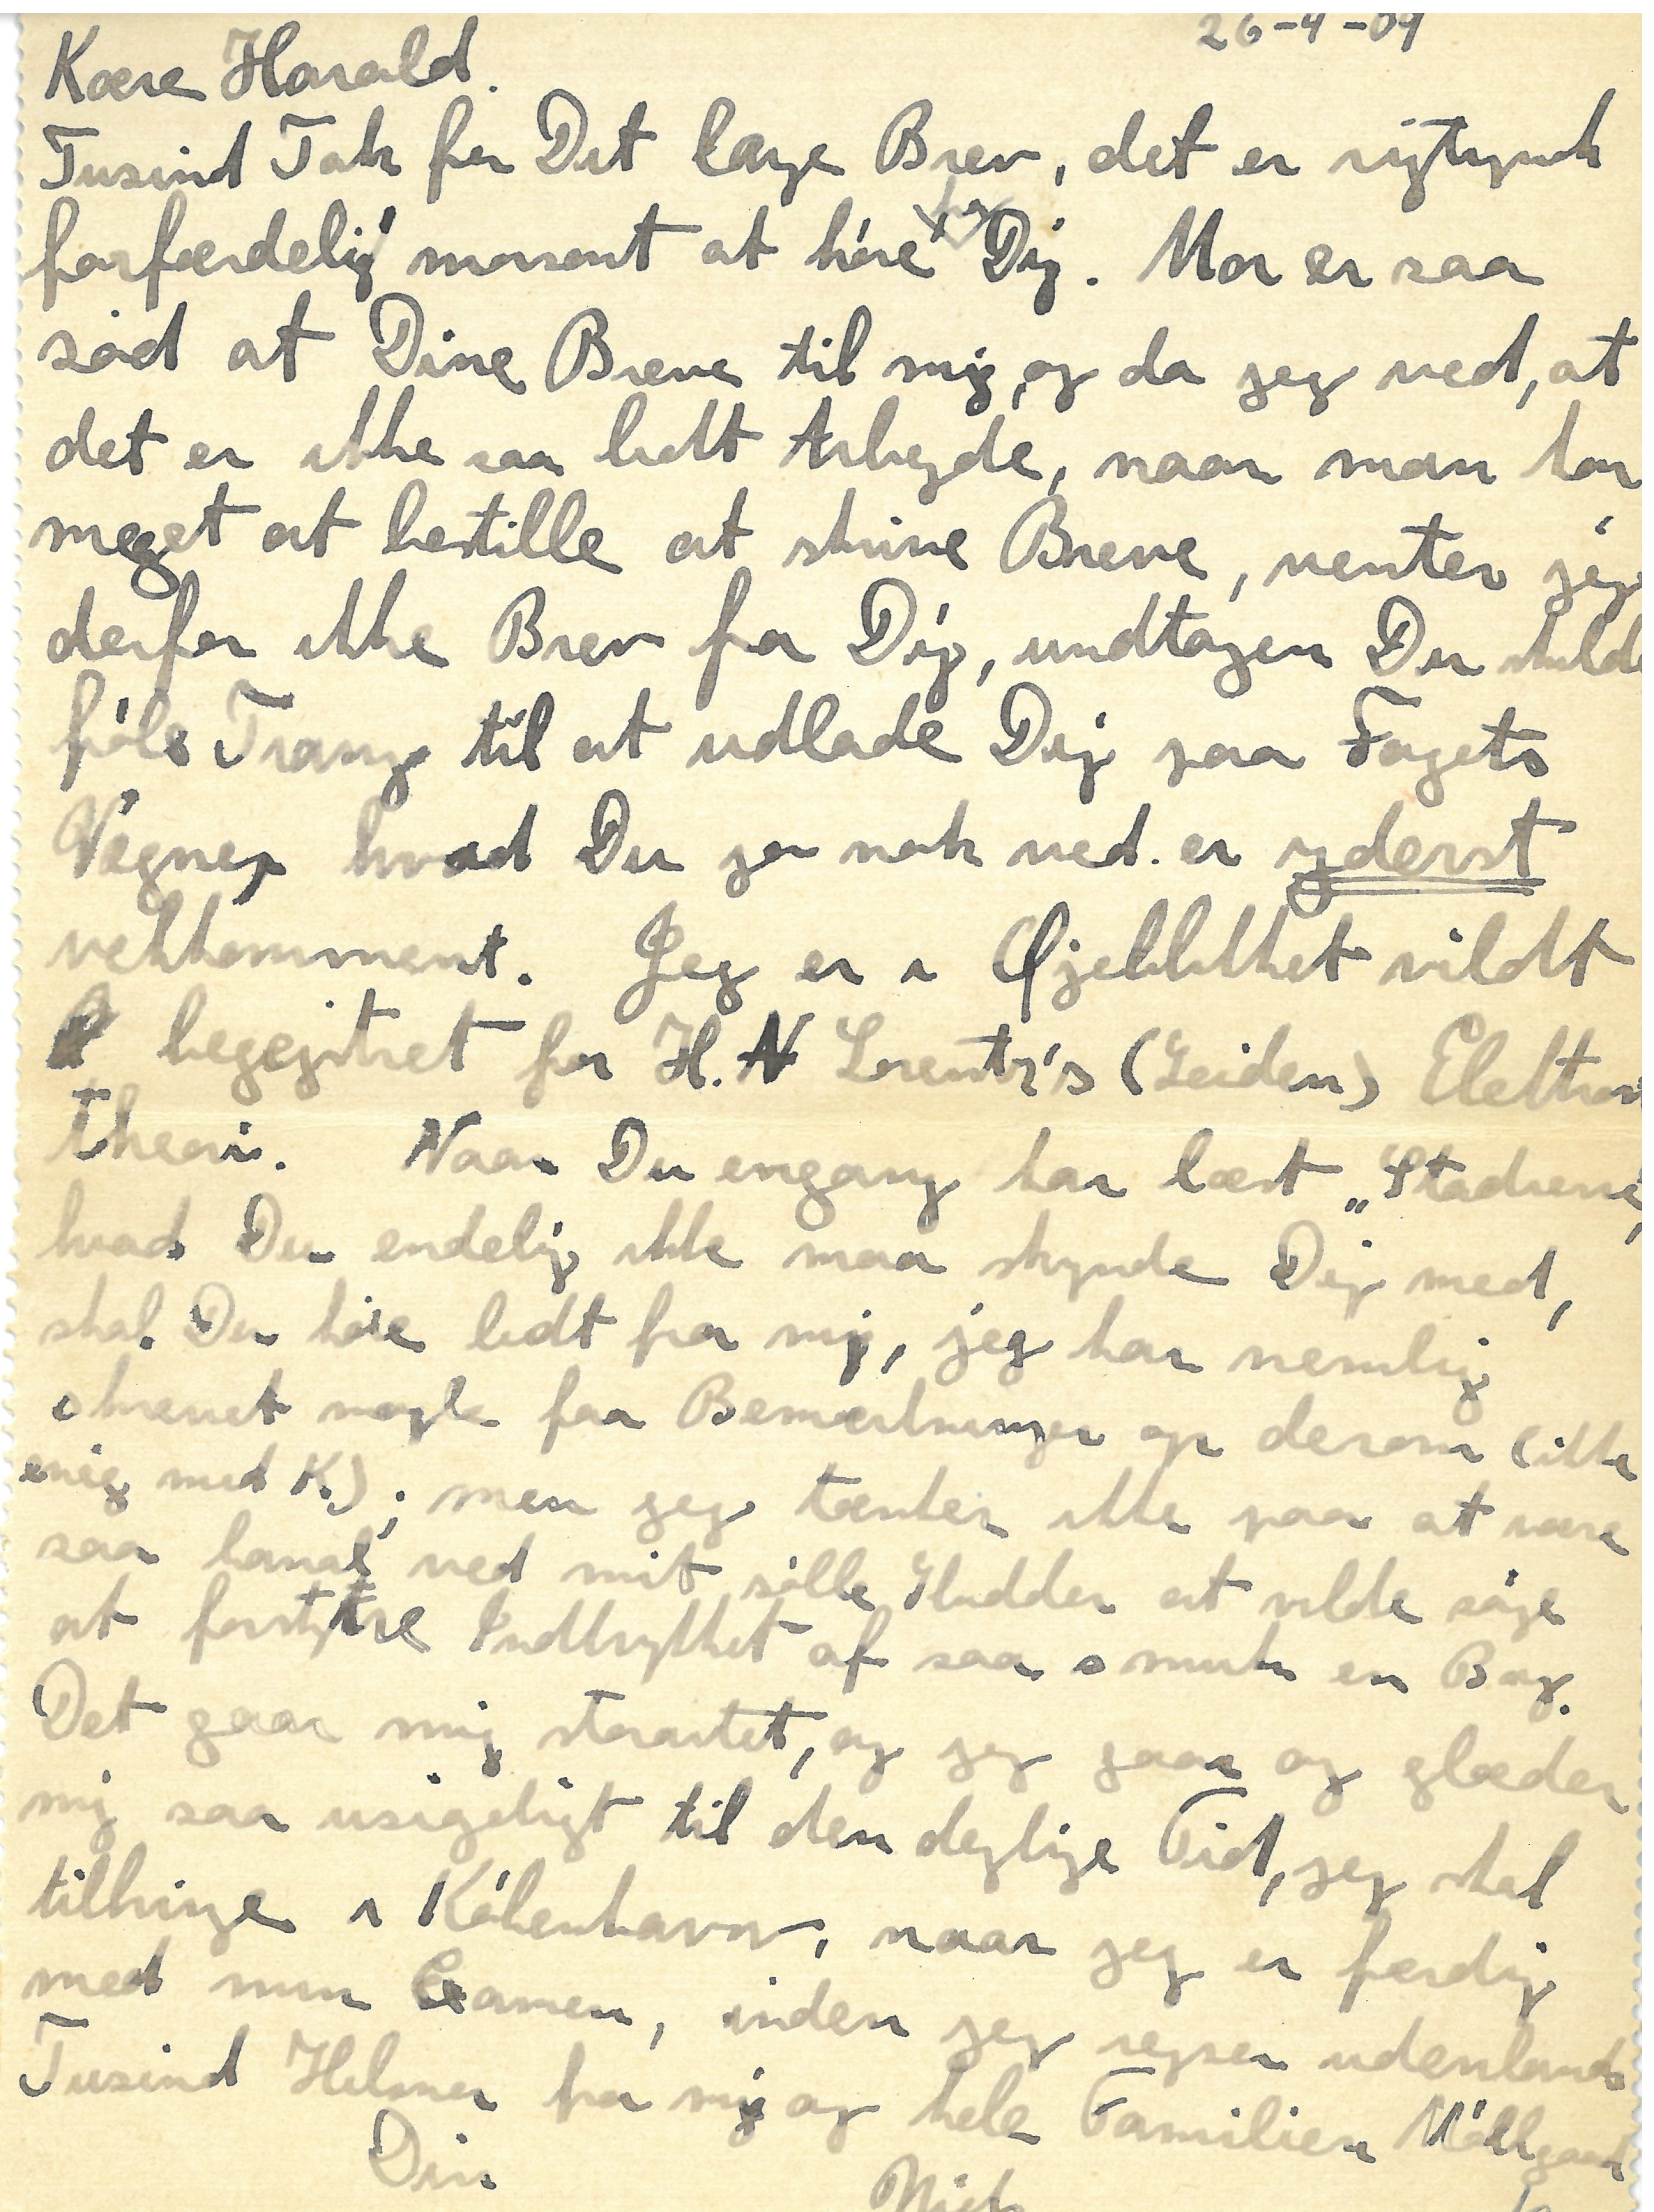 26-4-09
Kære Harald.
Tusind Tak for Dit lange Brev, det er rigtignok
forfærdelig morsomt at høre fra Dig. Mor er saa
sød at Dine Breve til mig, og da jeg ved, at
det er ikke saa lidt Arbejde, naar man har
meget at bestille at skrive Breve, venter jeg
derfor ikke Brev fra Dig, undtagen Du skulde
føle Trang til at udlade Dig paa Fagets
Vegne, hvad Du jo nok ved er yderst
velkkomment. Jeg er i Øjeblikket vildt
begejstret for H. A Lorentz's (Leiden) Elektron
theori. Naar Du engang har læst „Stadierne,
hvad Du endelig ikke maa skynde Dig med,
skal Du høre lidt fra mig, jeg har nemlig
skrevet nogle faa Bemærkninger op derom (ikke
enig med K.); men jeg tænker ikke paa at være
saa banal, ved mit sølle Sludder at vilde søge
at forstyrre Indtrykket af saa smuk en Bog.
Det gaar mig storartet, og jeg gaar og glæder
mig saa usigeligt til den dejlige Tid, jeg skal
tilbringe i København, naar jeg er færdig
med min Examen, inden jeg rejser udenlands
Tusind Hilsner fra mig og hele Familien Møllgaard
Din
Niels